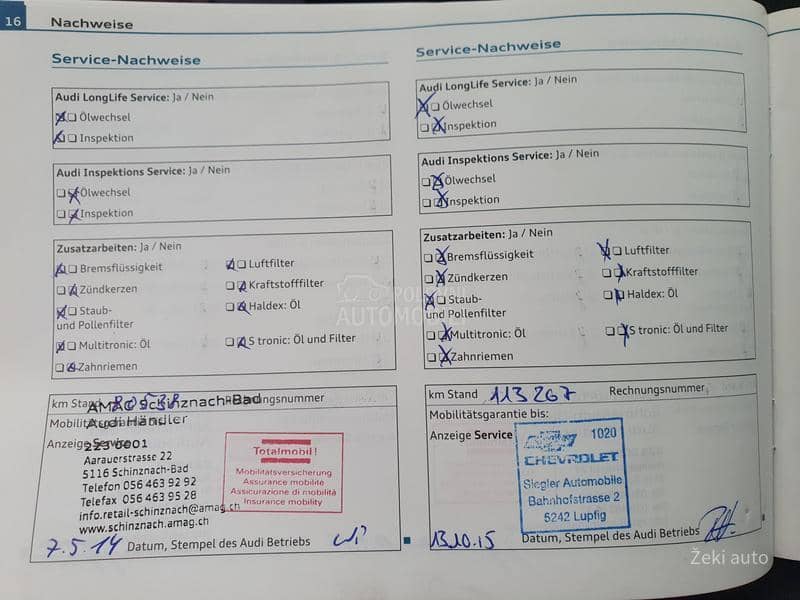 16
Nachweise
Service-Nachweise
Audi LongLife Service: Ja / Nein
Ölwechsel
Inspektion
Audi Inspektions Service: Ja / Nein
Ölwechsel
Inspektion
Zusatzarbeiten: Ja / Nein
Bremsflüssigkeit
Luftfilter
Zündkerzen
Kraftstofffilter
Staub-
und Pollenfilter
Haldex: Öl
Multitronic: Öl
S tronic: Öl und Filter
Zahnriemen
km Stand
AMAG Schinznach-Bad
Audi Händler
Anzeige Service
Aarauerstrasse 22
5116 Schinznach-Bad
Telefon 056 463 92 92
Telefax 056 463 95 28
info.retail-schinznach@amag.ch
www.schinznach.amag.ch
Totalmobil!
Mobilitätsversicherung
Assurance mobilité
Assicurazione di mobilità
Insurance mobility
7.5.14 Datum, Stempel des Audi Betriebs
Service-Nachweise
Audi LongLife Service: Ja / Nein
Ölwechsel
Inspektion
Audi Inspektions Service: Ja / Nein
Ölwechsel
Inspektion
Zusatzarbeiten: Ja / Nein
Bremsflüssigkeit
Luftfilter
Zündkerzen
Kraftstofffilter
Staub-
und Pollenfilter
Haldex: Öl
Multitronic: Öl
S tronic: Öl und Filter
Zahnriemen
km Stand 113267 Rechnungsnummer
Mobilitätsgarantie bis:
Anzeige Service
1020
CHEVROLET
Siegler Automobile
Bahnhofstrasse 2
5242 Lupfig
13.10.15 Datum, Stempel des Audi Betriebs
POLOVNI
AUTOMOBILI
Žeki auto